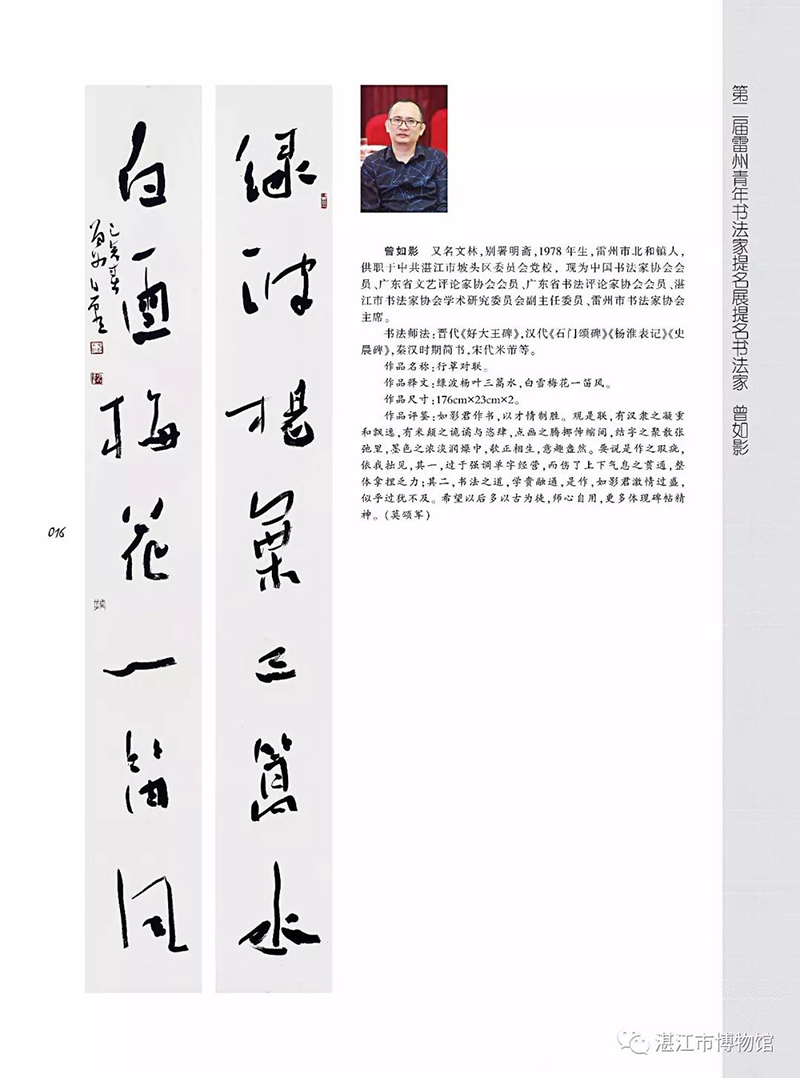 第二届雷州青年书法家提名展提名书法家 曾如影
绿波杨叶三篙水
白雪梅花一笛风
曾如影 又名文林,别署明斋,1978年生,雷州市北和镇人,
供职于中共湛江市坡头区委员会党校。现为中国书法家协会会
员、广东省文艺评论家协会会员、广东省书法评论家协会会员、湛
江市书法家协会学术研究委员会副主任委员、雷州市书法家协会
主席。
书法师法:晋代《好大王碑》,汉代《石门颂碑》《杨淮表记》《史
晨碑》,秦汉时期简书,宋代米芾等。
作品名称:行草对联。
作品释文:绿波杨叶三篙水,白雪梅花一笛风。
作品尺寸:176cm×23cm×2。
作品评鉴:如影君作书,以才情制胜。观是联,有汉隶之凝重
和飘逸,有米颠之诡谲与恣肆,点画之腾挪伸缩间,结字之聚散张
弛里,墨色之浓淡润燥中,欹正相生,意趣盎然。要说是作之瑕疵,
依我拙见,其一,过于强调单字经营,而伤了上下气息之贯通,整
体拿捏乏力;其二,书法之道,学贵融通,是作,如影君激情过盛,
似乎过犹不及。希望以后多以古为徒,师心自用,更多体现碑帖精
神。(莫颂军)
016
湛江市博物馆